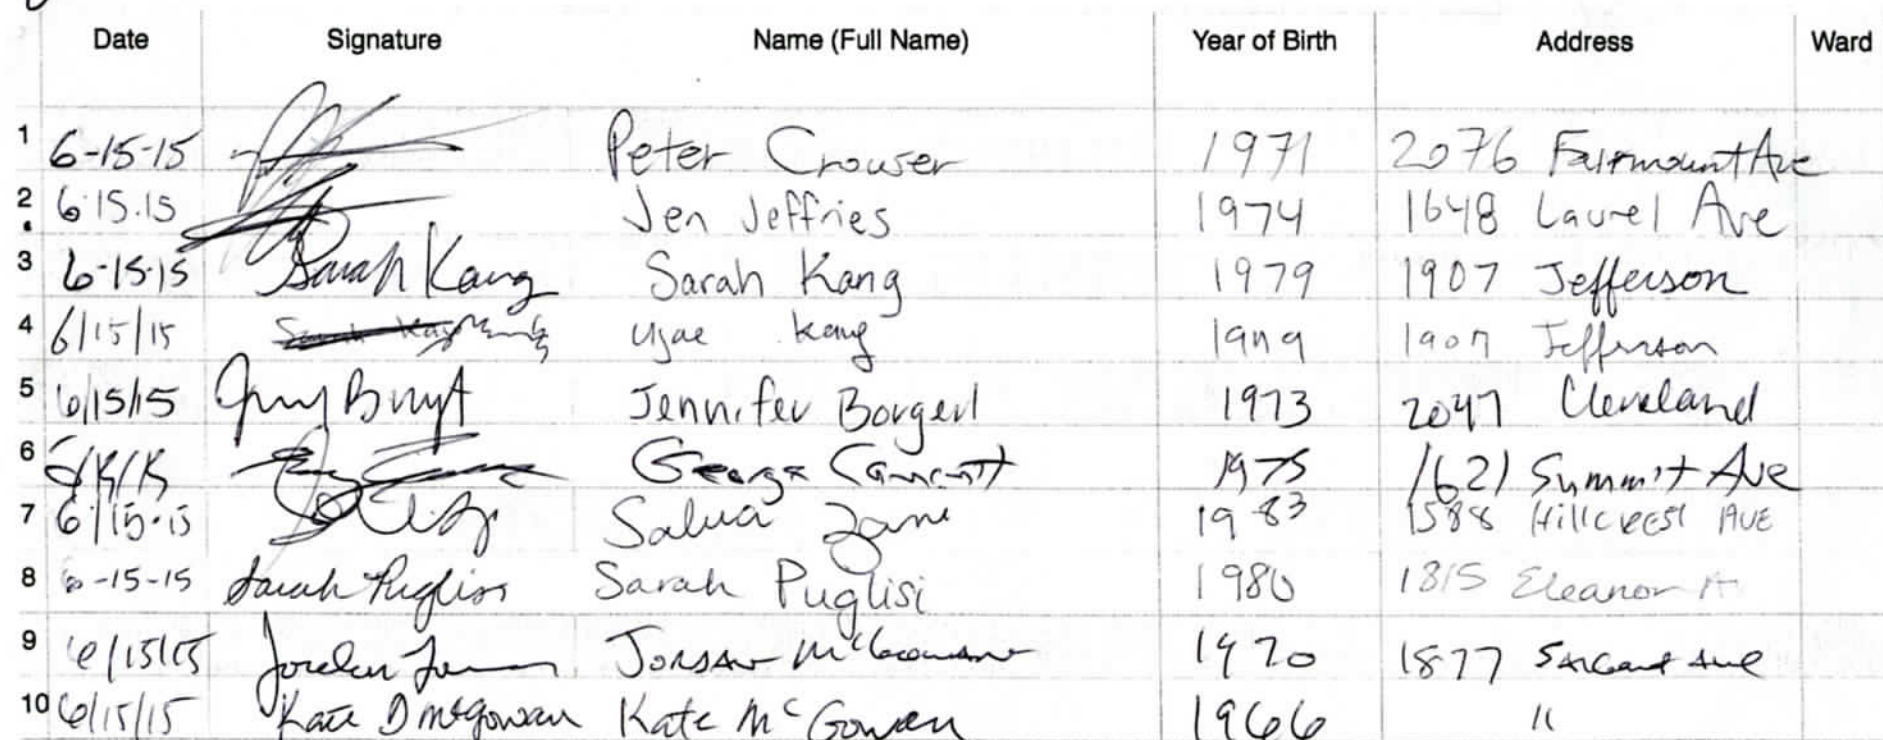 Date Signature Name (Full Name) Year of Birth Address Ward
1 6-15-15 Peter Crowser 1971 2076 Fairmount Ave
2 6.15.15 Jen Jeffries 1974 1648 Laurel Ave
3 6-15-15 Sarah Kang Sarah Kang 1979 1907 Jefferson
4 6/15/15 Kang 1907 Jefferson
5 6/15/15 Jennifer Borgerd 1973 2047 Cleveland
6 George 1975 1621 Summit Ave
7 6/15.15 Salua Zane 1983 1588 Hillcrest AVE
8 6-15-15 Sarah Puglisi Sarah Puglisi 1980 1815 Eleanor
9 6/15/15 Jordan McGowan 1970 1877 Sargent Ave
10 6/15/15 Kate D McGowan Kate McGowan 1966 "